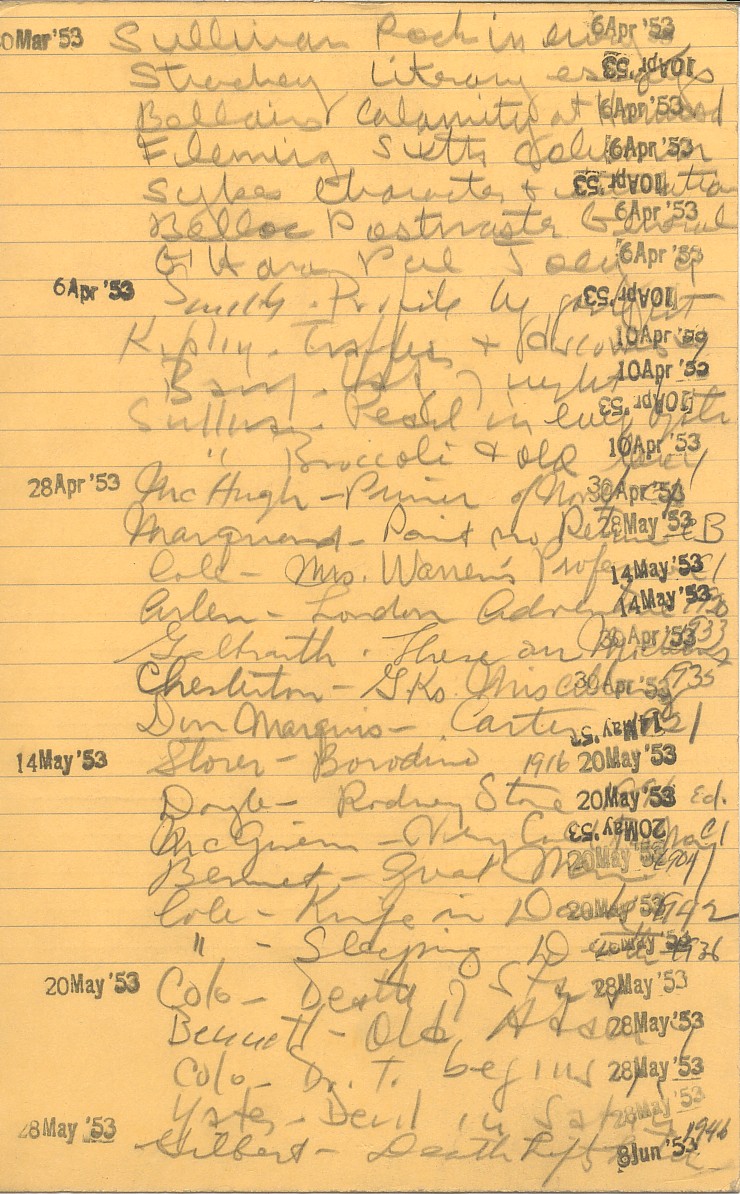 30 Mar '53 Sullivan Rock in every 6 Apr '53
Strachey Literary essays 10 Apr '53
Bellairs Calamity at Harwood 6 Apr '53
Fleming Sixth column 6 Apr '53
Sykes Character + situation 10 Apr '53
Belloc Postmaster General 6 Apr '53
O'Hara Pal Joey 6 Apr '53
6 Apr '53 Smith - Profile by gaslight 10 Apr '53
Kipling - Traffics + discoveries 10 Apr '53
10 Apr '53
Sullivan - Pearl in every oyster 10 Apr '53
" Broccoli & old lace 10 Apr '53
28 Apr '53 McHugh - Primer of 30 Apr '53
Marquand - Point no Return EB 28 May '53
Cole - Mrs. Warren's Profe C1 14 May '53
Arlen - London Adventure 14 May '53
Galbraith - These are 30 Apr '53 1933
Chesterton - GKs Miscellany 30 Apr '53 1935
Don Marquis - Carter 1921 14 May '53
14 May '53 Storer - Borodino 1916 20 May '53
Doyle - Rodney Stone Ed. 20 May '53
McGivern - Very Cold May C1 20 May '53
Bennet - Great Man 1904 20 May '53
Cole - Knife in Dark 1942 20 May '53
" - Sleeping Death 1936
20 May '53 Cole - Death of Star 28 May '53
Bennett - Old Adam 28 May '53
Cole - Dr. T. begins 28 May '53
Yates - Devil in Satin 28 May '53
28 May '53 Gilbert - Death lifts 1946 8 Jun '53